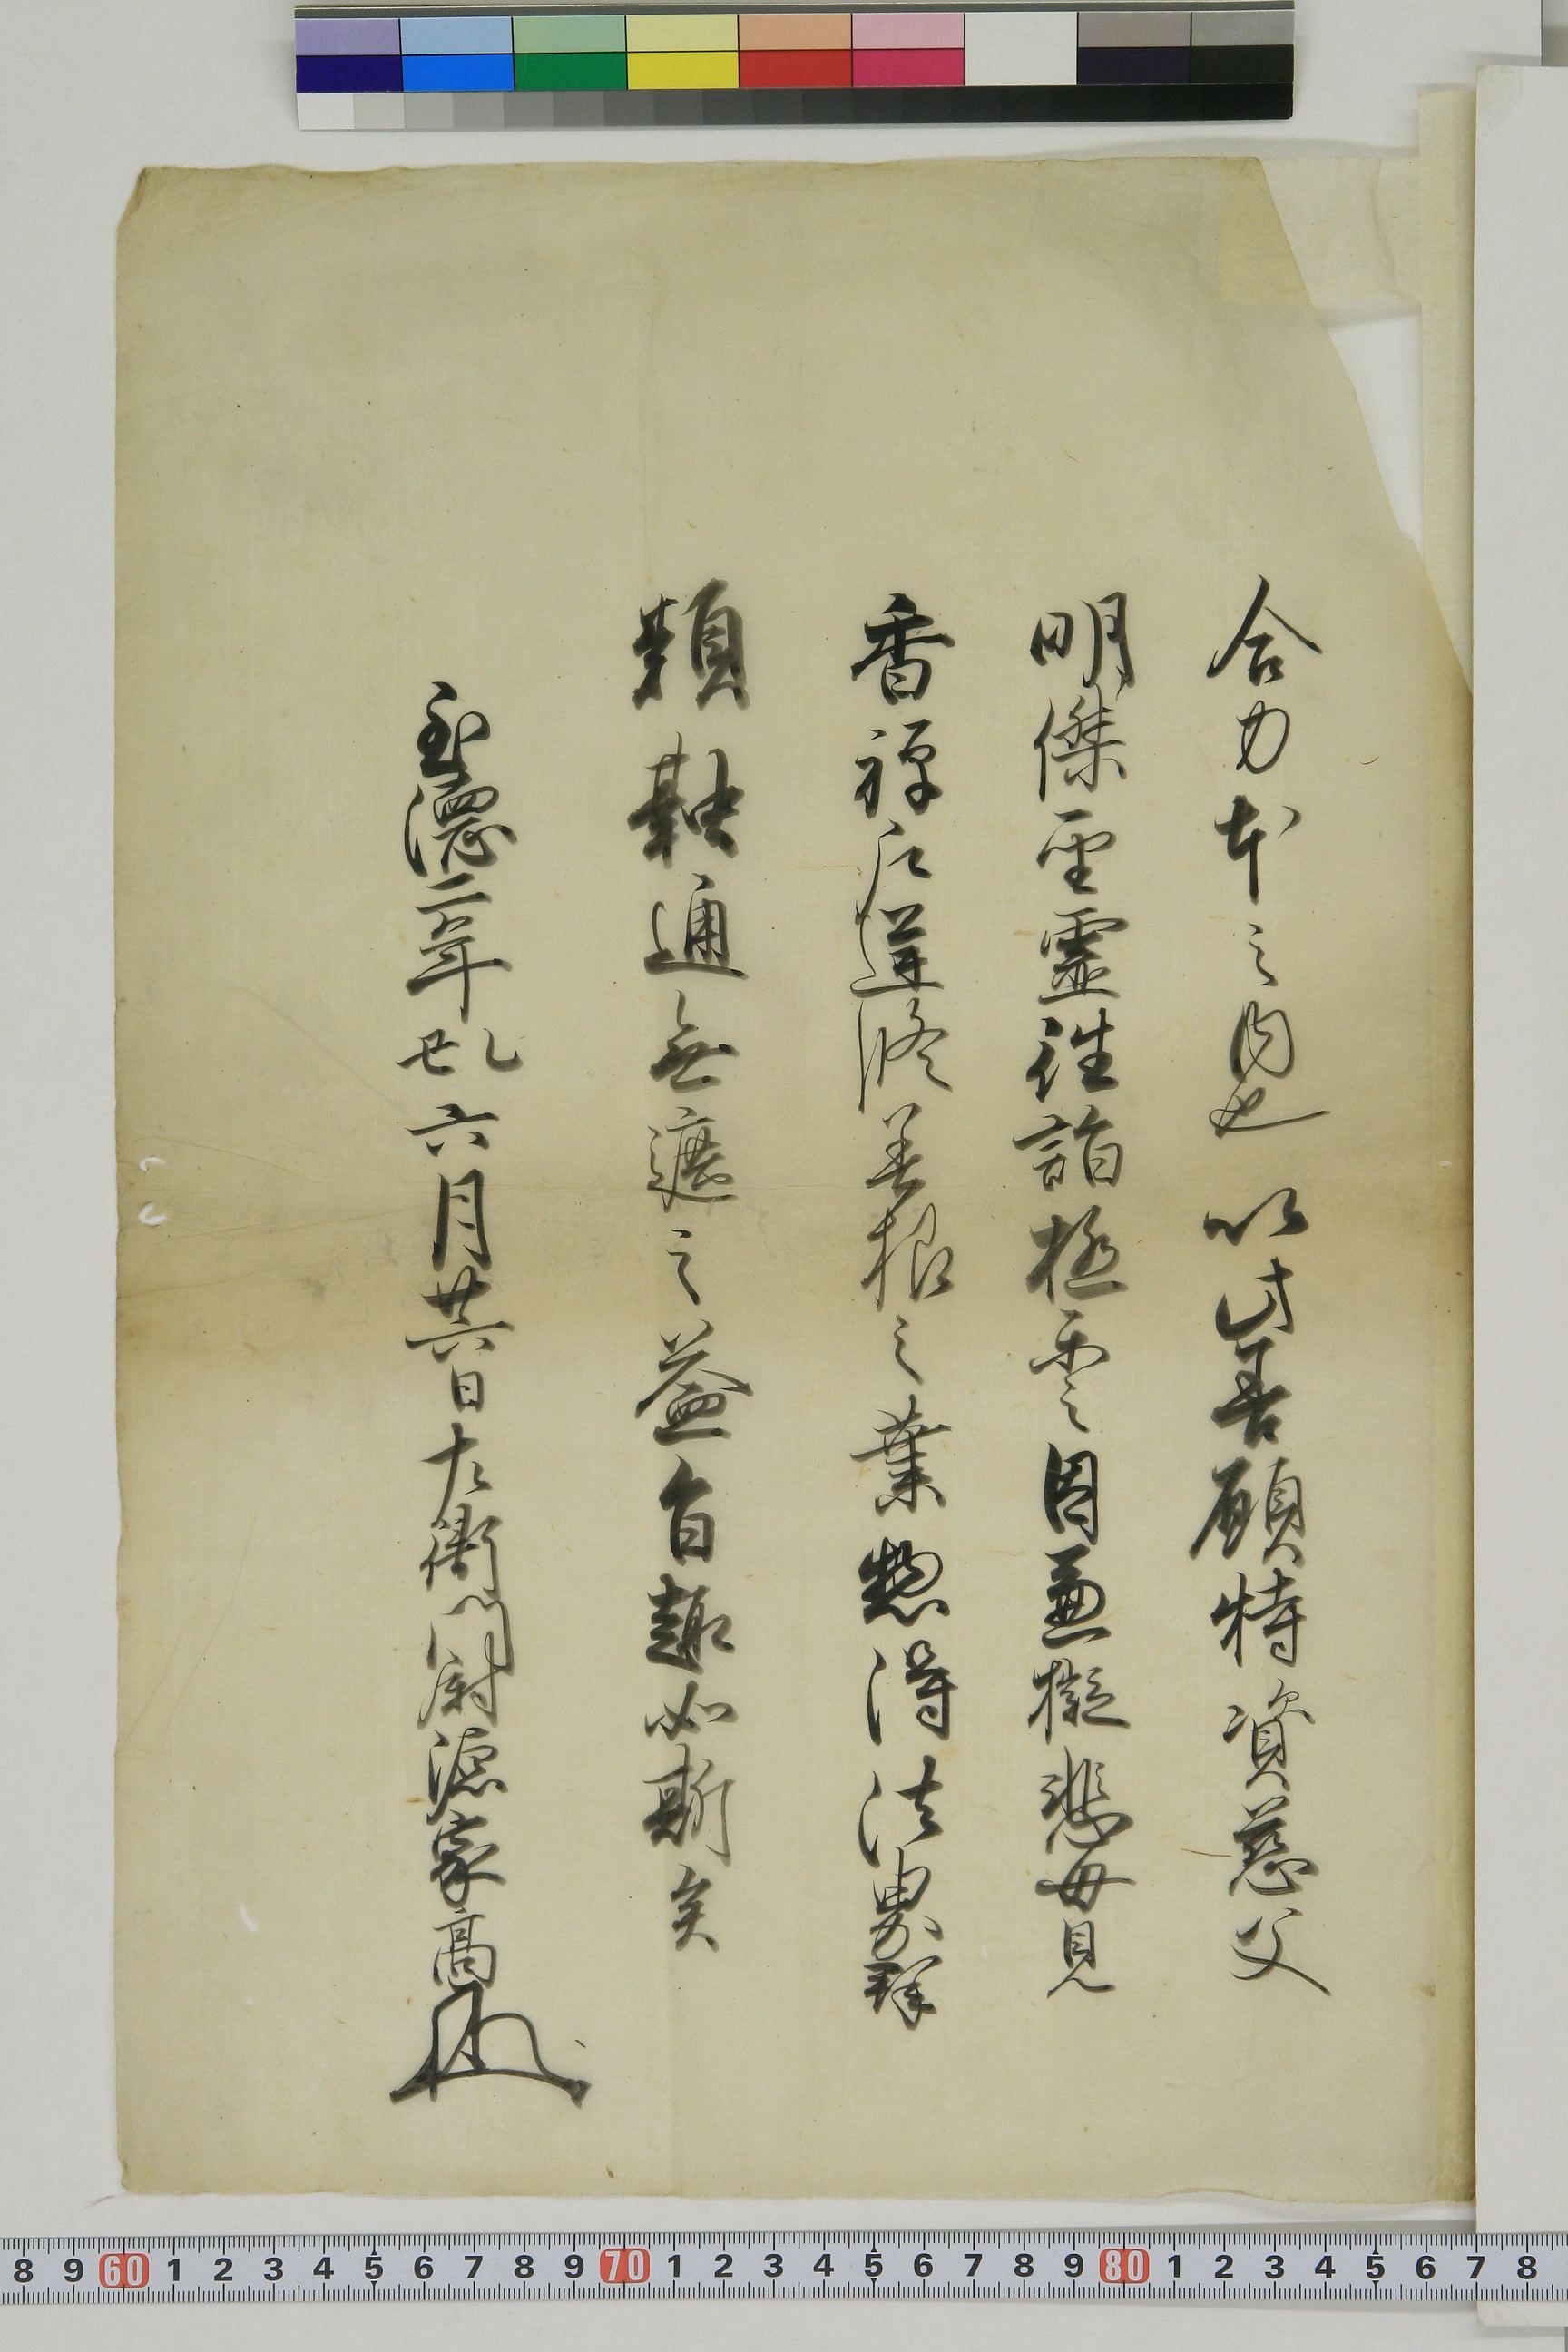 合力本之内也以此善願特資慈父
明傑聖霊往詣極楽之因兼擬悲母見
香禅尼逆修善根之業惣得法界群
類通無遮之益旨趣如斯矣
至徳二年乙丑六月廿六日左衛門尉源家高
8 9 60 1 2 3 4 5 6 7 8 9 70 1 2 3 4 5 6 7 8 9 80 1 2 3 4 5 6 7 8